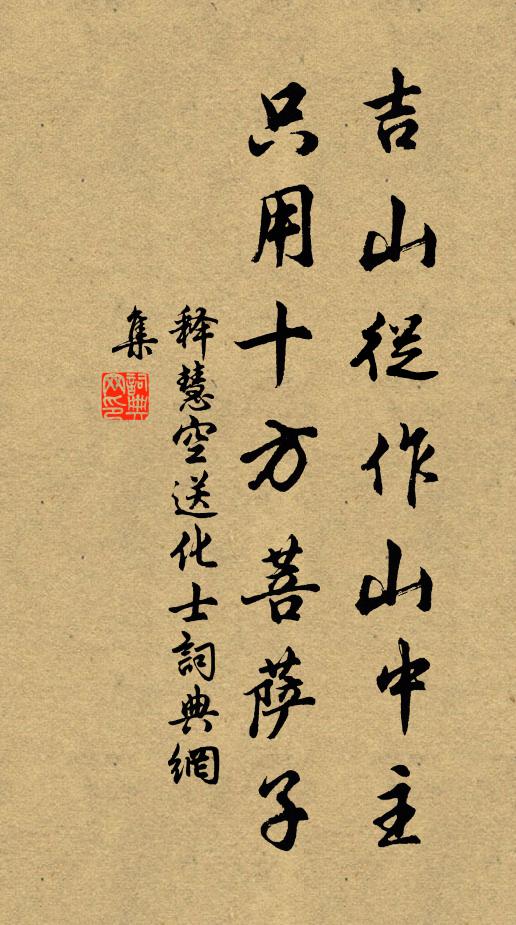 吉山從作山中主
只用十方菩薩子
释慧空送化士詞典網
集
詞典網印